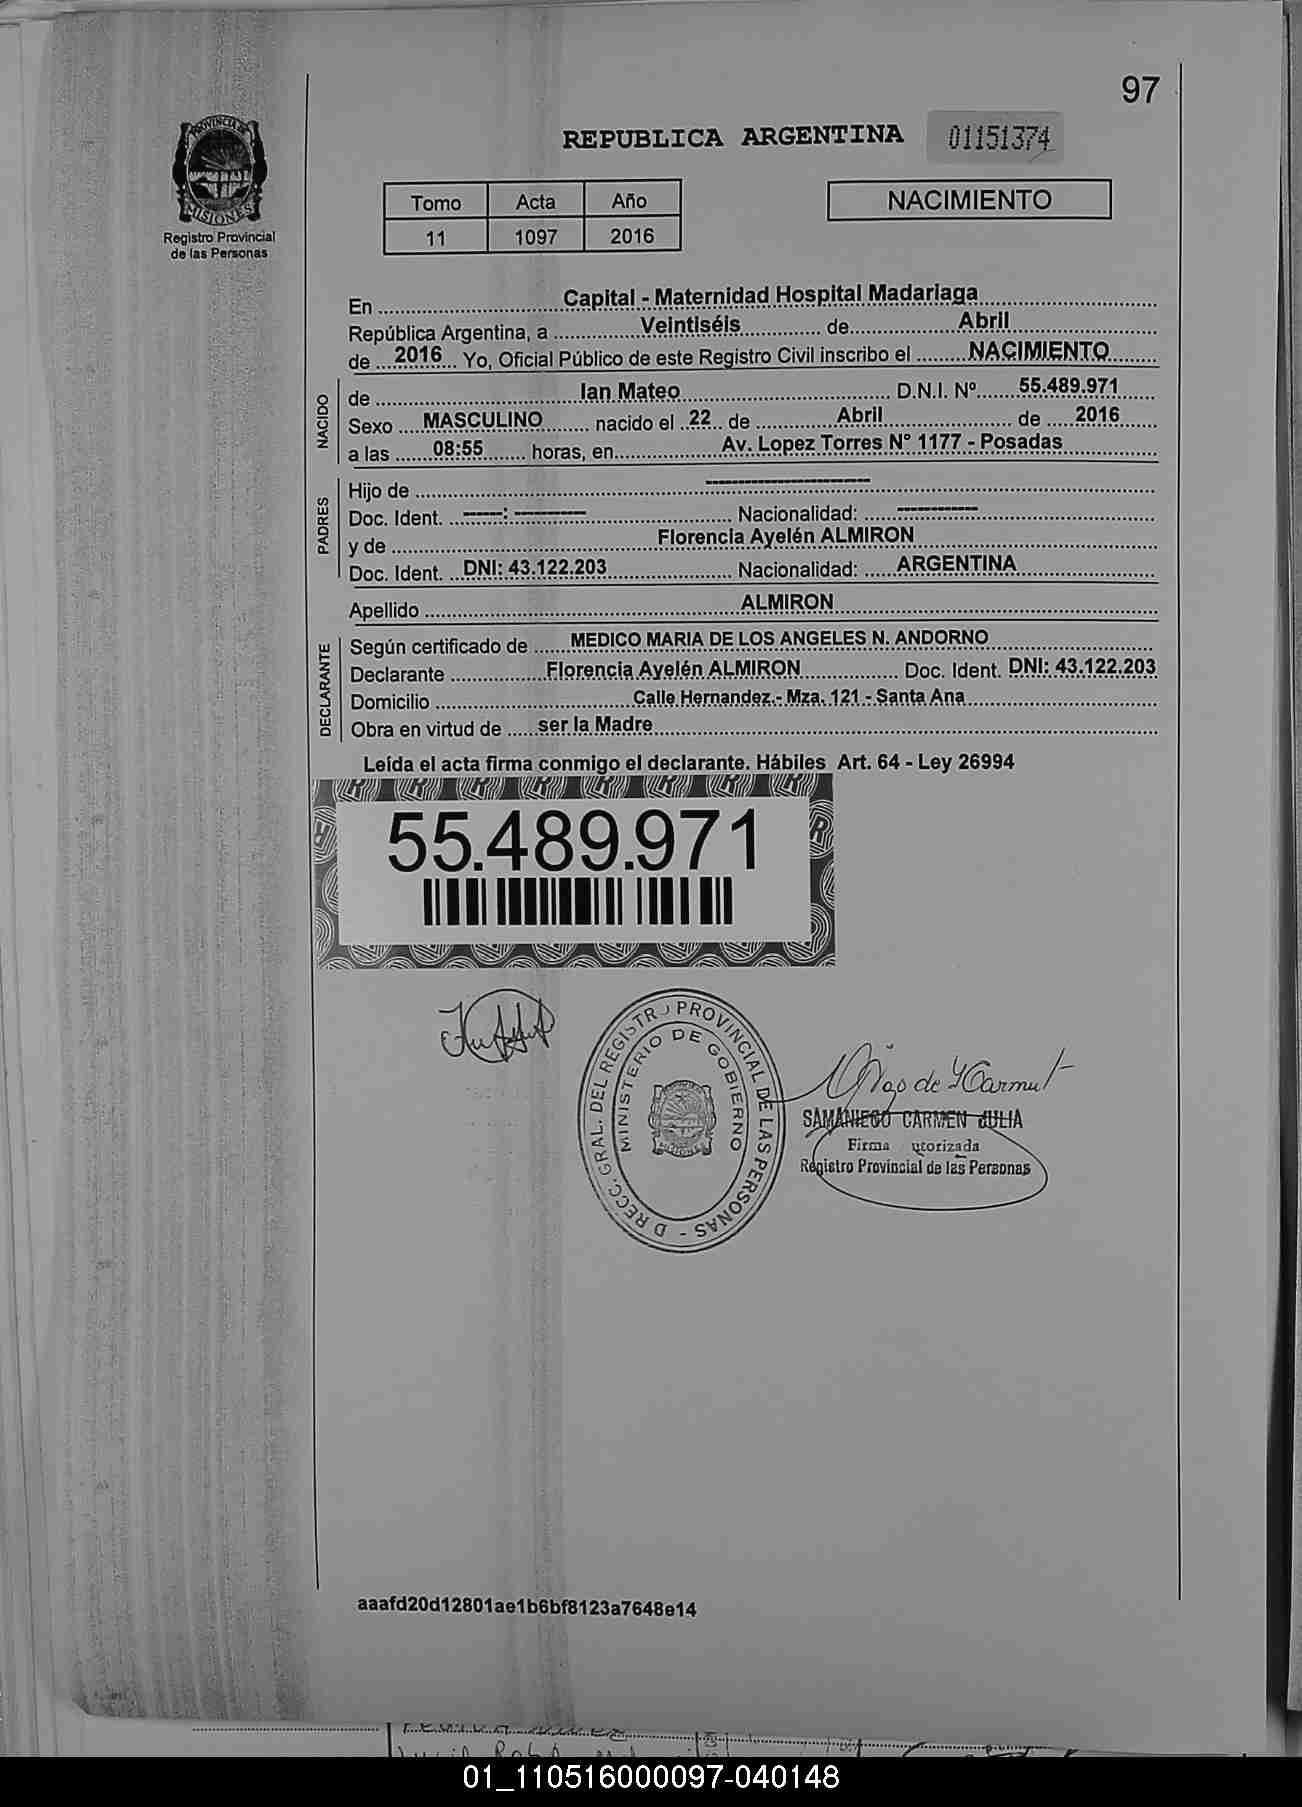 97
PROVINCIA DE
MISIONES
Registro Provincial
de las Personas
REPUBLICA ARGENTINA 01151374
Tomo Acta Año
11 1097 2016
NACIMIENTO
En Capital - Maternidad Hospital Madariaga
República Argentina, a Veintiséis de Abril
de 2016 Yo, Oficial Público de este Registro Civil inscribo el NACIMIENTO
NACIDO
de Ian Mateo D.N.I. Nº 55.489.971
Sexo MASCULINO nacido el 22 de Abril de 2016
a las 08:55 horas, en Av. Lopez Torres N° 1177 - Posadas
PADRES
Hijo de --------------------
Doc. Ident. -----: --------- Nacionalidad: ----------
y de Florencia Ayelén ALMIRON
Doc. Ident. DNI: 43.122.203 Nacionalidad: ARGENTINA
Apellido ALMIRON
DECLARANTE
Según certificado de MEDICO MARIA DE LOS ANGELES N. ANDORNO
Declarante Florencia Ayelén ALMIRON Doc. Ident. DNI: 43.122.203
Domicilio Calle Hernandez.- Mza. 121 - Santa Ana
Obra en virtud de ser la Madre
Leída el acta firma conmigo el declarante. Hábiles Art. 64 - Ley 26994
55.489.971
D RECC. GRAL. DEL REGISTRO PROVINCIAL DE LAS PERSONAS -
MINISTERIO DE GOBIERNO
SAMANIEGO CARMEN JULIA
Firma utorizada
Registro Provincial de las Personas
aaafd20d12801ae1b6bf8123a7648e14
01_110516000097-040148